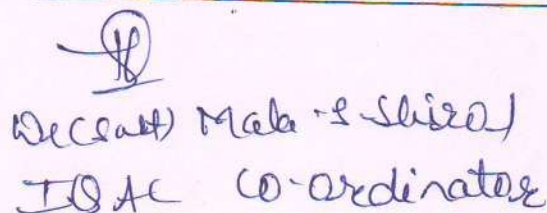 Dr(Smt) Mala.S.Shirol
IQAC Co-ordinator